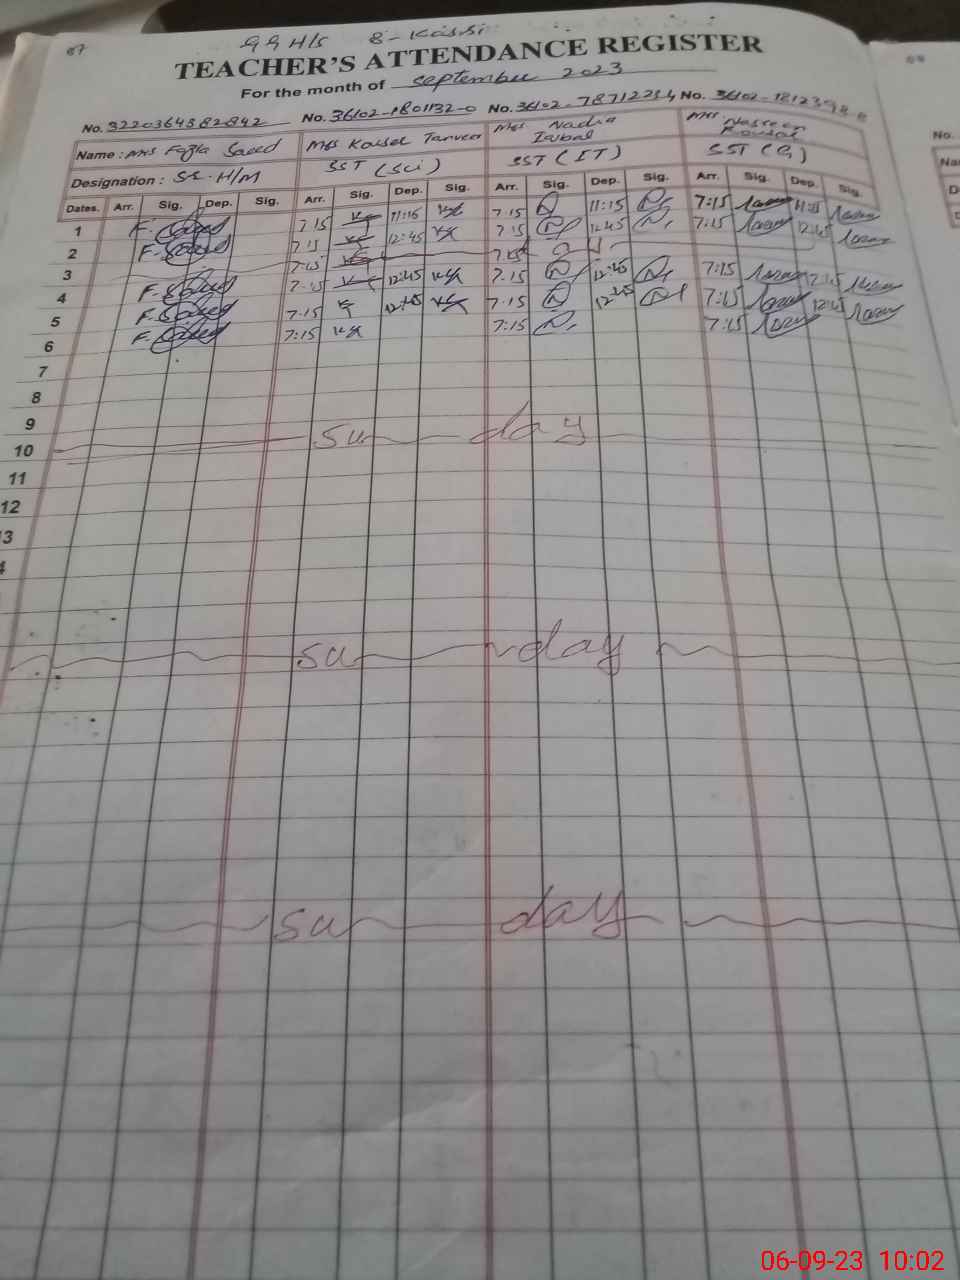 87
GGH/S 8-Kassi
TEACHER'S ATTENDANCE REGISTER
For the month of september 2023
No. 3220364382842 No. 36102-1801132-0 No. 36102-7871225-4 No. 36102-181239
Name: Mrs Fozla Saeed Mrs Kaiser Tanveer Mrs Nadia Iqbal Mrs Nasreen Kousar
Designation: SS. H/M SST (Sci) SST (IT) SST (G)
Dates. Arr. Sig. Dep. Sig. Arr. Sig. Dep. Sig. Arr. Sig. Dep. Sig. Arr. Sig. Dep. Sig.
1 F. Saeed 7:15 11:15 7:15 11:15 7:15 11:15
2 F. Saeed 7:15 12:45 7:15 12:45 7:15 12:45
3 7:15 7:15
4 F. Saeed 7:15 12:45 7:15 12:45 7:15 12:45
5 F. Saeed 7:15 12:45 7:15 12:45 7:15 12:45
6 F. Saeed 7:15 7:15 7:15
7
8
9
10 Sunday
11
12
3
4
Sunday
Sunday
No.
Na
D
06-09-23 10:02